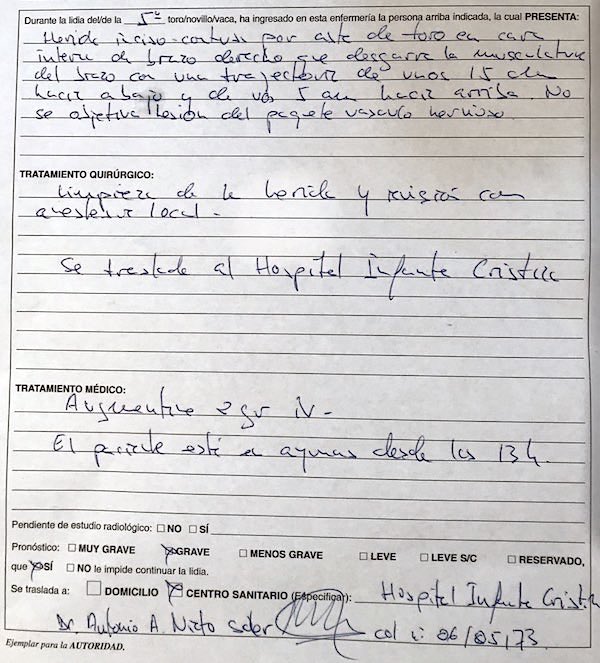 Durante la lidia del/de la 5º toro/novillo/vaca, ha ingresado en esta enfermería la persona arriba indicada, la cual PRESENTA:
Herida inciso-contusa por asta de toro en cara
interna de brazo derecho que desgarra la musculatura
del brazo con una trayectoria de unos 15 cm
hacia abajo y de unos 5 cm hacia arriba. No
se objetiva lesión del paquete vasculo nervioso.
TRATAMIENTO QUIRÚRGICO:
Limpieza de la herida y revisión con
anestesia local.
Se traslada al Hospital Infanta Cristina
TRATAMIENTO MÉDICO:
Augmentine 2 gr iv.
El paciente está en ayunas desde las 13 h.
Pendiente de estudio radiológico: ☐ NO ☐ SÍ
Pronóstico: ☐ MUY GRAVE ☒ GRAVE ☐ MENOS GRAVE ☐ LEVE ☐ LEVE S/C ☐ RESERVADO,
que ☒ SÍ ☐ NO le impide continuar la lidia.
Se traslada a: ☐ DOMICILIO ☒ CENTRO SANITARIO (Especificar): Hospital Infanta Cristina
Dr. Antonio A. Nieto col 06/05/73
Ejemplar para la AUTORIDAD.